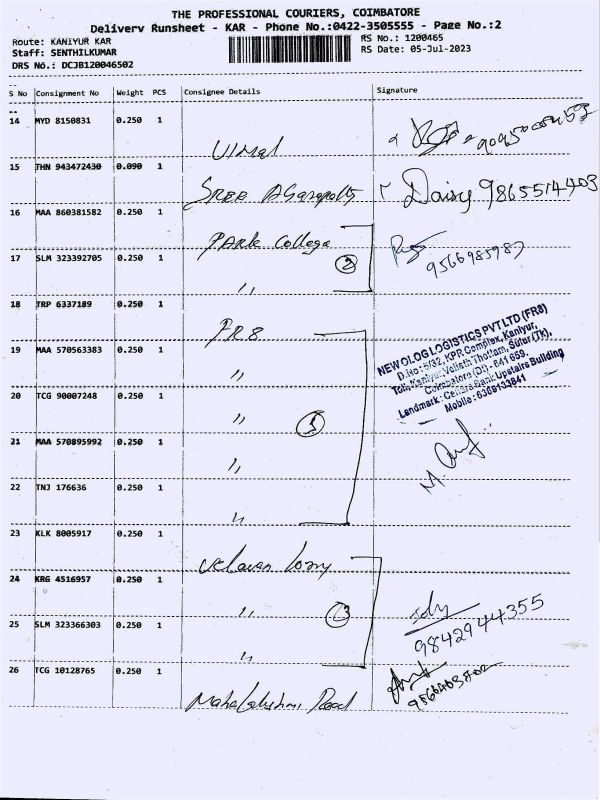 THE PROFESSIONAL COURIERS, COIMBATORE
Delivery Runsheet - KAR - Phone No.:0422-3505555 - Page No.:2
Route: KANIYUR KAR
RS No.: 1200465
Staff: SENTHILKUMAR
RS Date: 05-Jul-2023
DRS No.: DCJB120046502
S No Consignment No Weight PCS Consignee Details Signature
14 MYD 8150831 0.250 1
Vimal
15 THN 943472430 0.090 1
SREE
Daisy 9865514403
16 MAA 860381582 0.250 1
PARK College
17 SLM 323392705 0.250 1
2
"
18 TRP 6337189 0.250 1
FR8
19 MAA 570563383 0.250 1
"
20 TCG 90007248 0.250 1
"
5
21 MAA 570895992 0.250 1
"
22 TNJ 176636 0.250 1
"
NEWOLOG LOGISTICS PVT LTD (FR8)
D.No: 5/32, KPR Complex, Kaniyur,
Toll, Kaniyur, Vellath Thottam, Sulur (Tk),
Coimbatore (Dt) - 641 659.
Landmark: Canara Bank Upstairs Building
Mobile: 6369133841
23 KLK 8005917 0.250 1
Velavan Lorry
24 KRG 4516957 0.250 1
"
3
25 SLM 323366303 0.250 1
"
9842944355
26 TCG 10128765 0.250 1
Mahalakshmi Road